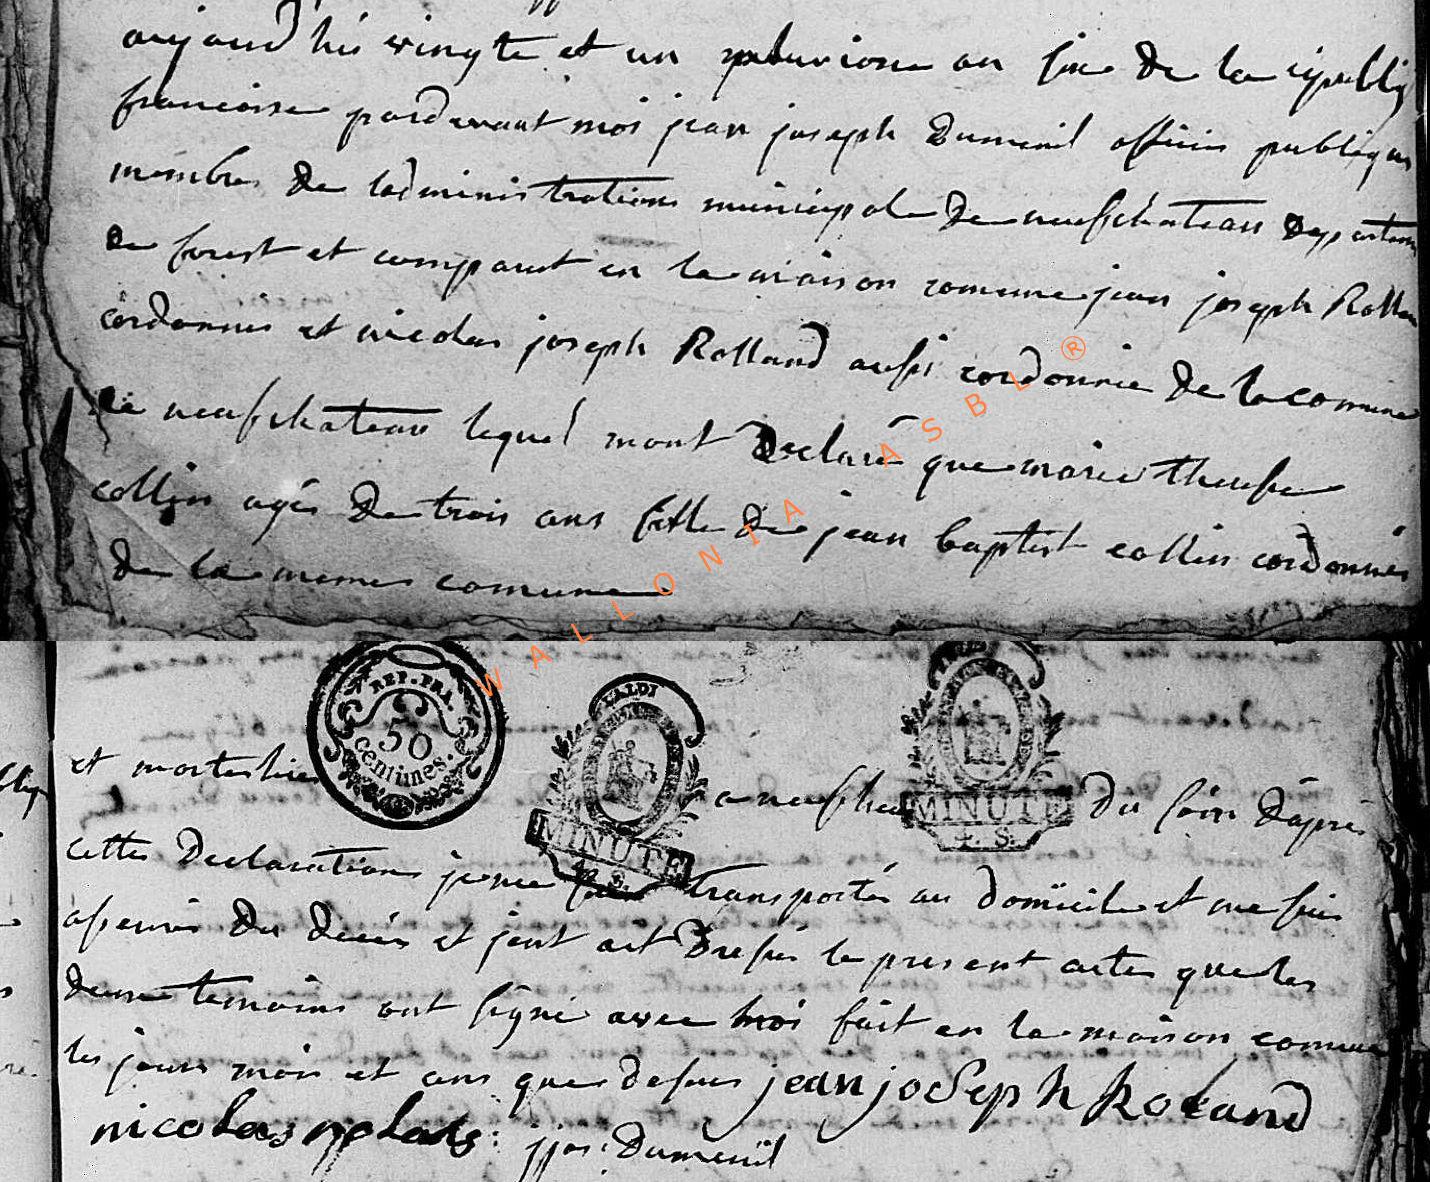 aujourd his vingte et un pluvione an sixe de la republiq
francoisse pardevant moi jean joseph Dumenil officier publique
membres de ladministrations municipale de neufchateau departem
de forest et comparut en la maison comune jean joseph Rollan
cordonnier et nicolas joseph Rolland aussi cordonnie de la comune
de neufchateau lequel mont declaré que marie therese
collin agée de trois ans fille de jean baptist collin cordonnier
de la memes comune
REP. FRA.
50
centimes.
MINUTE
4. S.
MINUTE
4. S.
et morte hier a neufcha du soire daprès
cettes declarations je me suis transportés au domicile et me suis
assurés du decés et jent ait dressés le present actes que les
deux temoins ont signé avec moi fait en la maison comune
les jours mois et ans que dessus jean joseph Roland
nicolas rolans jjos: Dumenil
WALLONIA ASBL ®